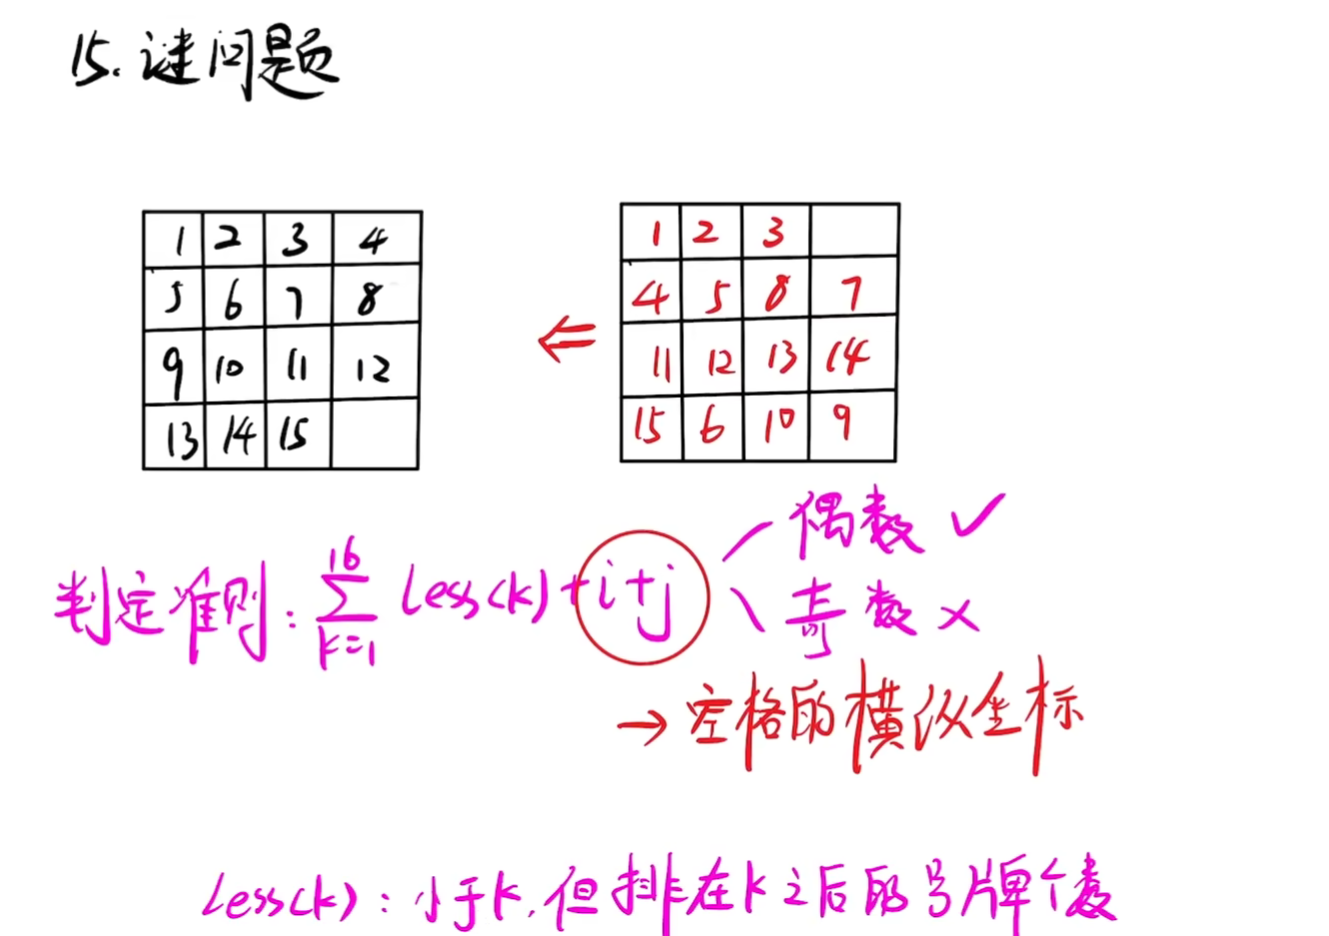 15.谜问题
1 2 3 4
5 6 7 8
9 10 11 12
13 14 15
⇐
1 2 3
4 5 8 7
11 12 13 14
15 6 10 9
判定准则：∑_{k=1}^{16} Less(k)+i+j
偶数 ✓
奇数 ×
→ 空格的横纵坐标
Less(k)：小于k,但排在k之后的号牌个数